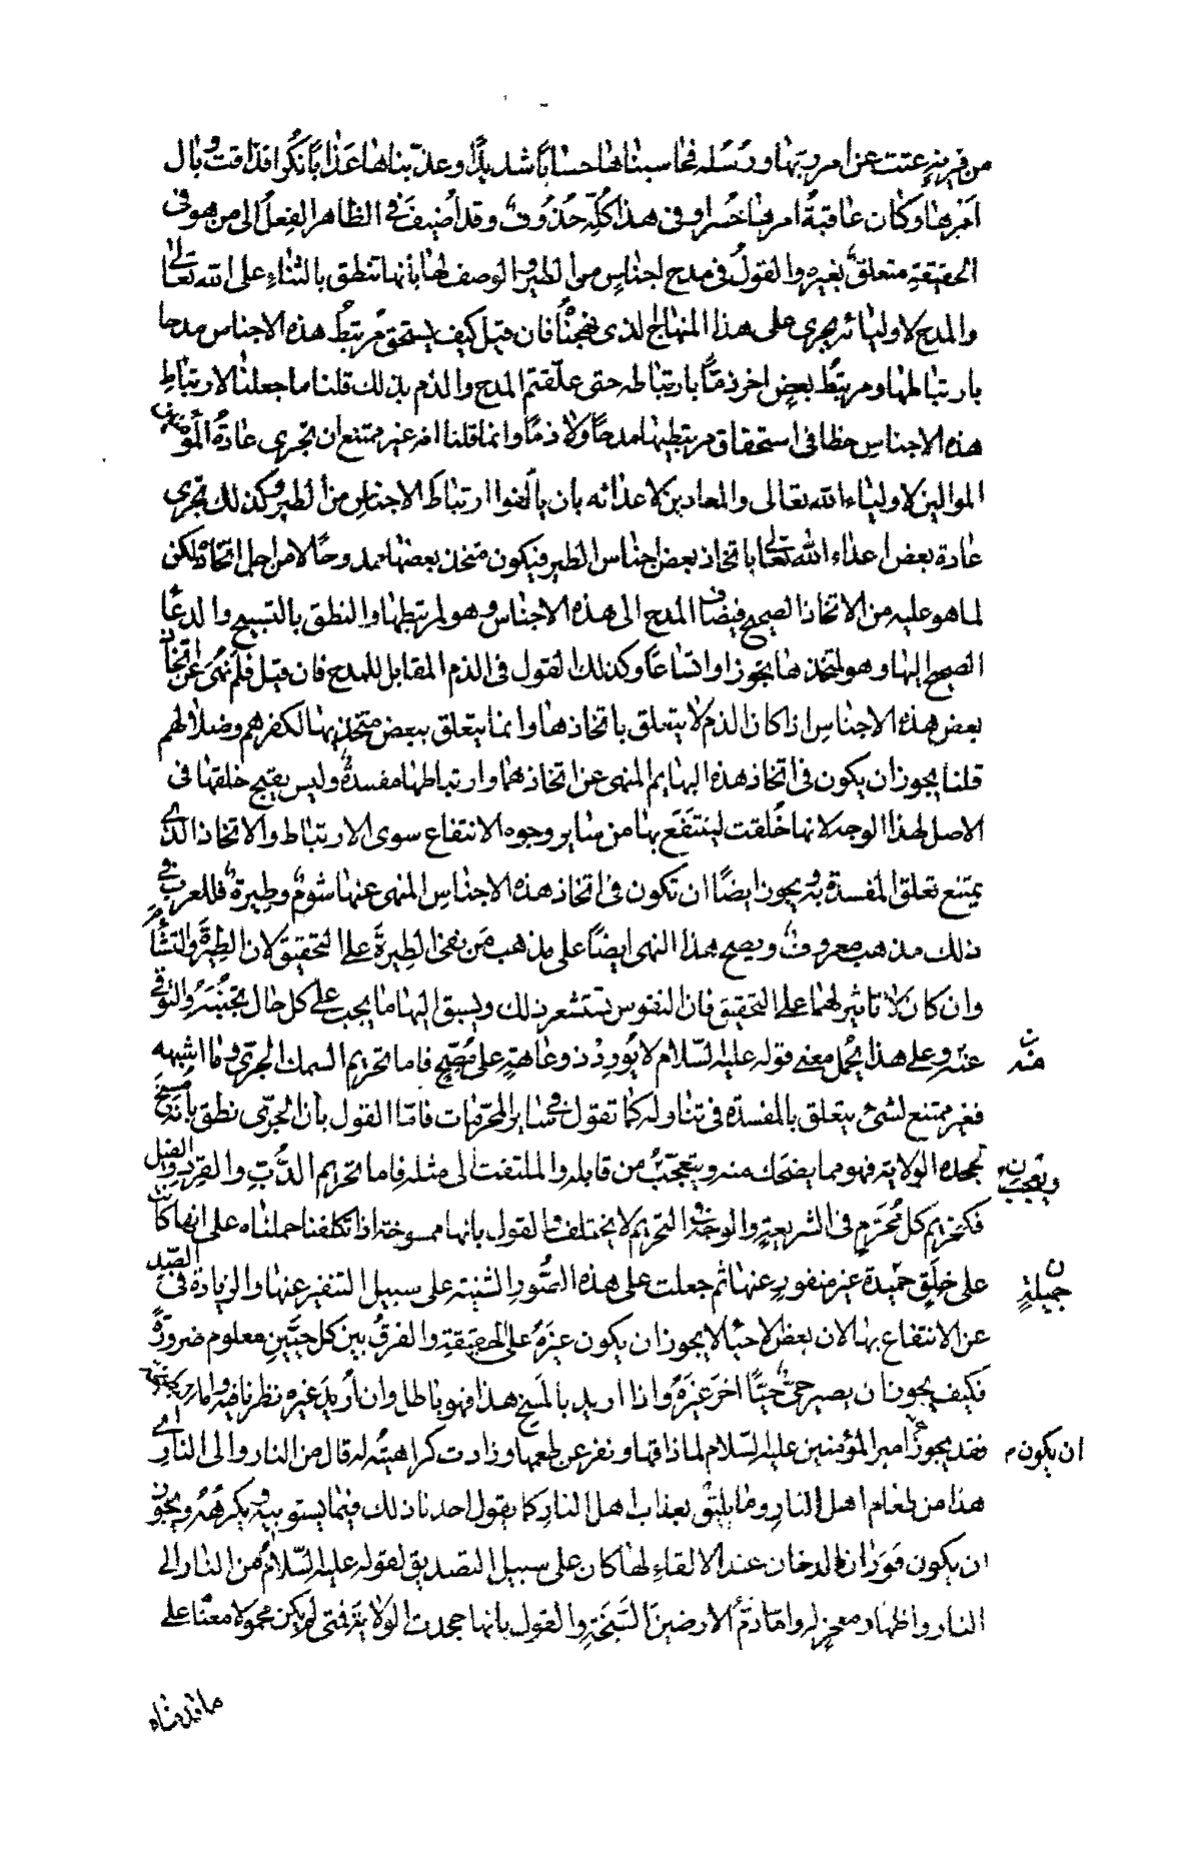 من قرية عتت عن امر ربها ورسله فحاسبناها حسابًا شديدًا وعذّبناها عَذابًا نُكرا فذاقت وبال
اَمْرِها وكان عاقبةُ امرها خُسرا وفى هذا كلّه حُذُوفٌ وقد اُضيفَ فى الظاهر الفِعلُ الى من هو فى
الحقيقةِ متعلقٌ بغيره والقولُ فى مدح اجناسٍ من الطير والوصف لها بأنها تنطق بالثناءِ على الله تعالى
والمدح لاوليائه يجرى على هذا المنهاج الذى نهجناهُ فان قيل كيف يستحق مُرتبطُ هذه الاجناس مدحا
بارتباطها ومرتبطُ بعضٍ اخر ذمًّا بارتباطه حتى علّقتم المدح والذم بذلك قلنا ما جعلنا لارتباطِ
هذه الاجناس حظا فى استحقاق مرتبطيها مدحًا ولا ذمًا وانما قلنا انه غير ممتنع ان تجرى عادةُ المؤمنين
الموالين لاولياء الله تعالى والمعادين لاعدائه بان يألفوا ارتباط الاجناسِ من الطير وكذلك تجرى
عادة بعض اعداء الله تعالى باتخاذ بعض اجناس الطير فيكون متخذ بعضها ممدوحًا لا من اجل اتخاذه لكن
لما هو عليه من الاتخاذ الصحيح فيضاف المدح الى هذه الاجناس وهو لمرتبطها والنطق بالتسبيح والدعاء
الصحيح اليها وهو لمتخذها تجوّزا واتساعًا وكذلك القول فى الذم المقابل للمدح فان قيل فلم نُهىَ عن اتخاذ
بعض هذه الاجناسِ اذا كان الذم لا يتعلق باتخاذها وانما يتعلق ببعض متخذيها لكفرهم وضلالهم
قلنا يجوز ان يكون فى اتخاذ هذه البهايم المنهى عن اتخاذها وارتباطها مفسدةٌ وليس يقبح خلقها فى
الاصل لهذا الوجه لانها خُلقت لينتفَعَ بها من ساير وجوه الانتفاع سوى الارتباط والاتخاذ الذى
يمتنع تعلق المفسدة به ويجوز ايضًا ان تكون فى اتخاذ هذه الاجناسِ المنهى عنها شومٌ وطِيرةٌ فللعرب فى
ذلك مذهب معروفٌ ويصح هذا النهى ايضًا على مذهب مَن نفى الطِيرةَ على التحقيق لان الطِيرَةَ والتشَأُّمَ
وان كان لا تاثير لهما على التحقيق فان النفوس تستشعر ذلك ويسبق اليها ما يجب على كل حال تجنّبُهُ والتوقّى
عنه وعلى هذا يُحمل معنى قوله عليه السّلام لا يُورِدُ ذو عاهةٍ على مُصِحّ فاما تحريم السمك الجرّى وما اشبهه
منه
فغير ممتنع لشئ يتعلق بالمفسدة فى تناوله كما تقول فى ساير المحرّمات فامّا القول بأن الجرّى نطق بأنه مُسِخَ
لجحده الولاية فهو مما يضحك منه ويتعجّب من قايله والملتفت الى مثله فاما تحريم الدُّبِّ والقِردِ والفيل
ويعجب
فكتحريم كل مُحَرَّمٍ فى الشريعةِ والوجهُ فى التحريم لا يختلف والقول بانها ممسوخة اذا تكلفنا حملناه على انها كانت
على خِلَقٍ حميدة غير منفورٍ عنها ثم جعلت على هذه الصُّورِ الشنيئة على سبيل التنفير عنها والزيادة فى الصّدِ
جميلةٍ
عن الانتفاع بها لان بعض الاحياء لا يجوز ان يكون غيرَهُ على الحقيقة والفرقُ بين كل حيَّينِ معلوم ضرورةً
فكيف يجوز ان يصير حىٌّ حيًّا اخرَ غيرَهُ واذا اريد بالمَسخِ هذا فهو باطل وان اُريدَ غيره نظرنا فيه واما
فقد يجوز امير المؤمنين عليه السّلام لما ذاقها ونفر عن طعمها وزادت كراهيتُه له قال من النار والى النار اى
ان يكون
هذا من طعام اهل النارِ وما يليق بعذاب اهل النارِ كما يقول احدنا ذلك فيما يستوبيه ويكرهُهُ ويجوز
ان يكون فَوَرَان الدخان عند الالقاءِ لها كان على سبيل التصديق لقوله عليه السّلام من النار الى
النار واظهار معجزٍ له واما ذمُّ الارضينَ السَبِخَةِ والقول بانها جحدت الولاية فمتى لم يكن محمولا معناه على
ما قدمناه